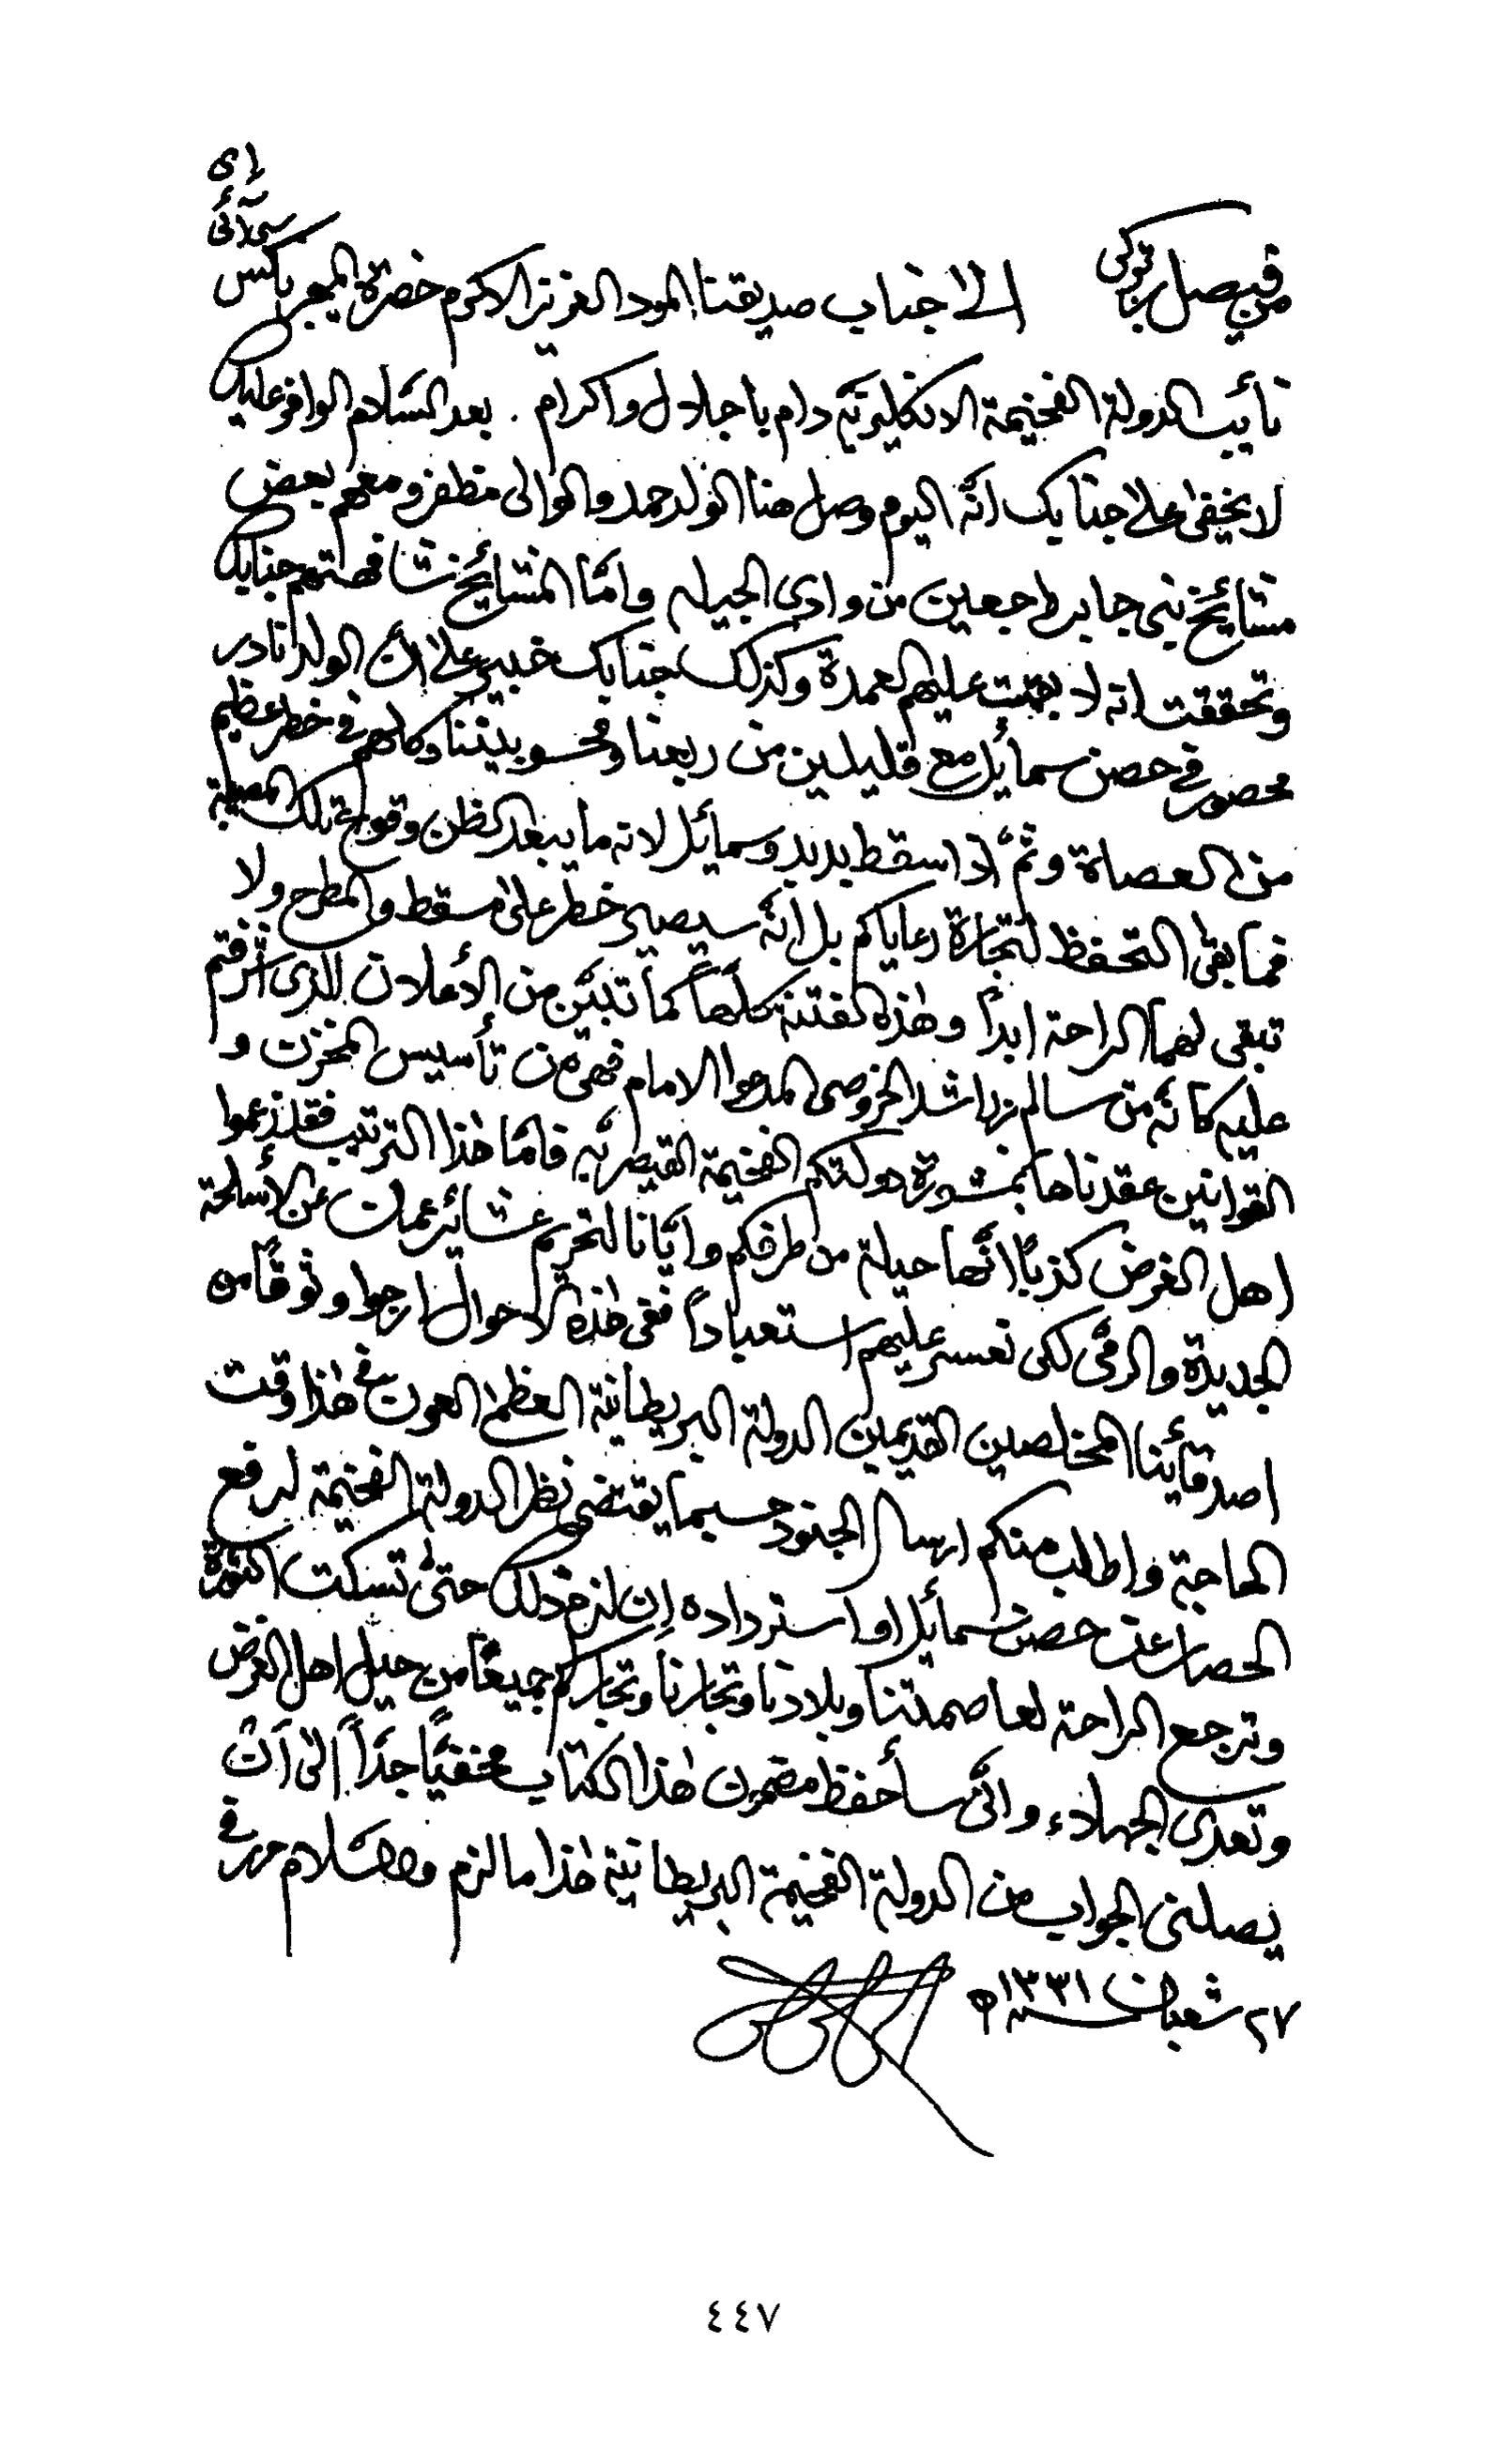 سي آئي إي
من فيصل بن تركي الى جناب صديقنا المود العزيز الاكرم حضرة الميجر ناكس
نائب الدولة الفخيمة الانكليزيّة دام باجلال واكرام . بعد السّلام الوافر عليك
لا يخفى على جنابك انّه اليوم وصل هنا الولد حمد والوالى مظفر ومعهم بعض
مشائخ بني جابر راجعين من وادى الجيله وامّا المشائخ شافهتهم جنابك
وتحققت انه لا يعتمد عليهم العمدة وكذلك جنابك خبير على أن الولد نادر
محصور في حصن سمائل مع قليلين من ربعنا ومحسوبيننا وكلهم في خطر عظيم
من العصاة وثمّ اذا سقط بدبد وسمائل لانه ما يبعد الظن وقوع تلك المصيبة
فما بقى التحفظ لتجارة رعاياكم بل انّه سيصير خطر على مسقط والمطرح ولا
تبقى لهما الراحة ابداً وهذه الفتنة كلّها كما تبيّن من الأعلان الذى اشرفتم
عليه كانّه من سالم بن راشد الخروصى المدعوا الامام فهى من تأسيس المخزن و
القوانين عقدناها بمشورة دولتكم الفخيمة القيصريّه فامّا هذا الترتيب فقد زعموا
اهل الغرض كذباً انّها حيلة من طرفكم وايّانا لتحريم عشائر عمان عن الأسلحة
الجديدة والرمى لكى نعسر عليهم استعباداً ففى هذه الاحوال ارجوا وثوقاً من
اصدقائنا المخلصين القديمين الدولة البريطانيّة العظمى العون في هذا وقت
الحاجة واطلب منكم ارسال الجنود حسبما يقتضى نظر الدولة الفخيمة لدفع
الحصار عن حصن سمائل او استرداده إن لزم ذلك حتّى تسكت الثورة
وترجع الراحة لعاصمتنا وبلادنا وتجارنا وتجاركم جميعاً من حيل اهل الغرض
وتعدى الجهلاء وانّى سأحفظ مضمون هذا الكتاب مخفيّاً جدّاً الى أن
يصلنى الجواب من الدولة الفخيمة البريطانيّة هذا ما لزم والسّلام حرر في
٢٧ شعبان سنة ١٣٣١ه
٤٤٧